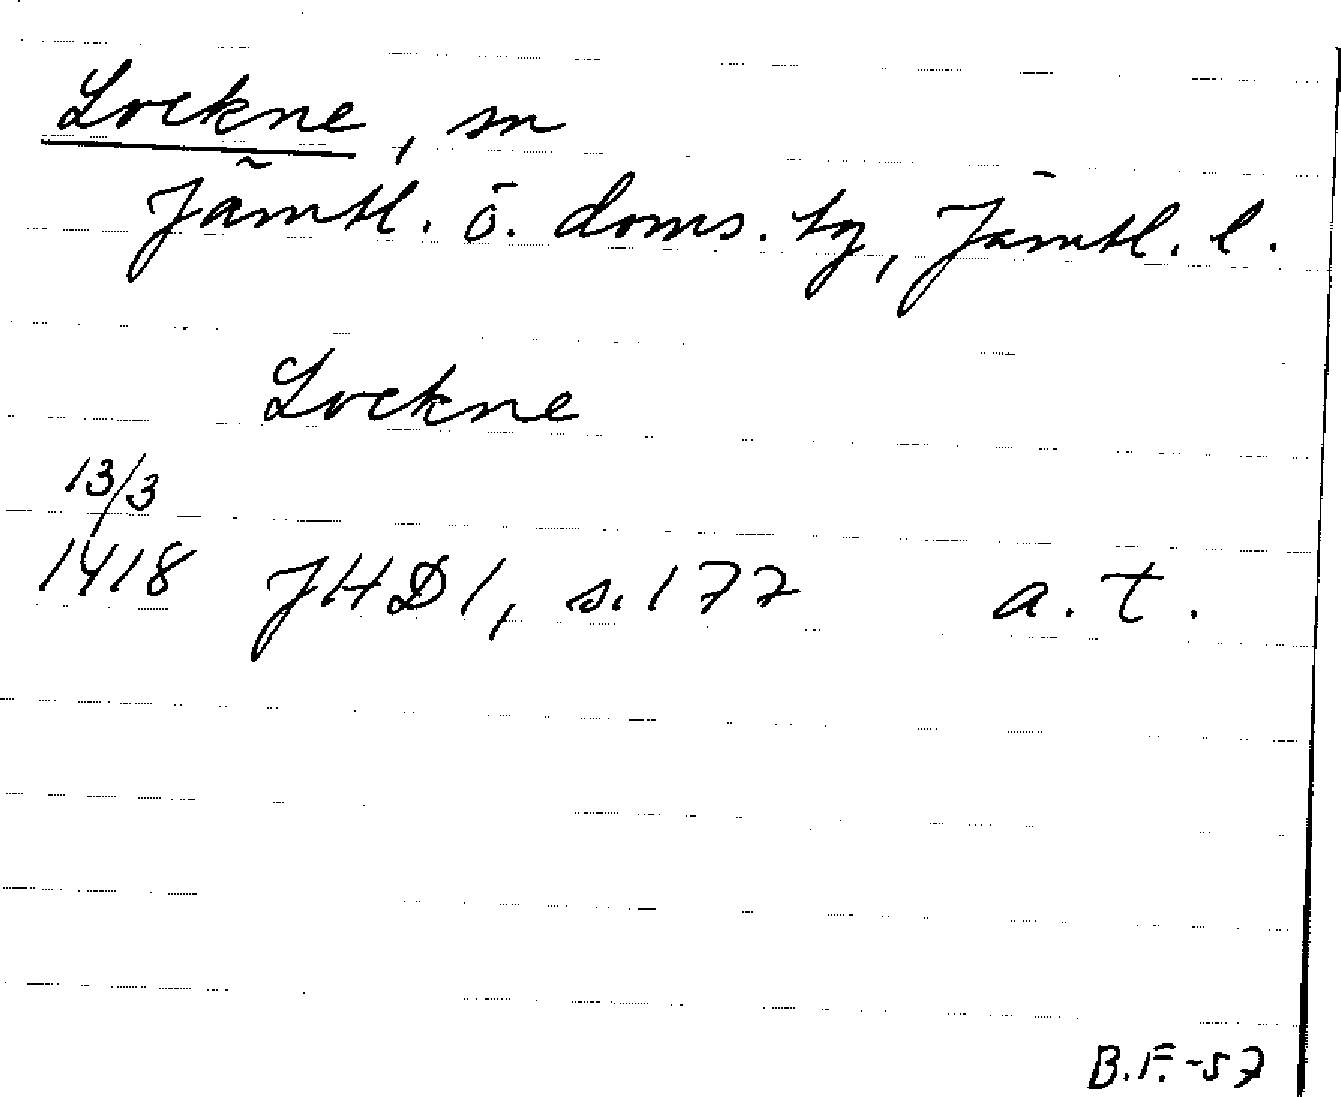 Lockne, sn
Jämtl. ö. doms. tg, Jämtl. l.
Lockne
13/3
1418 JHD 1, s. 177 a. t.
B.F. -57